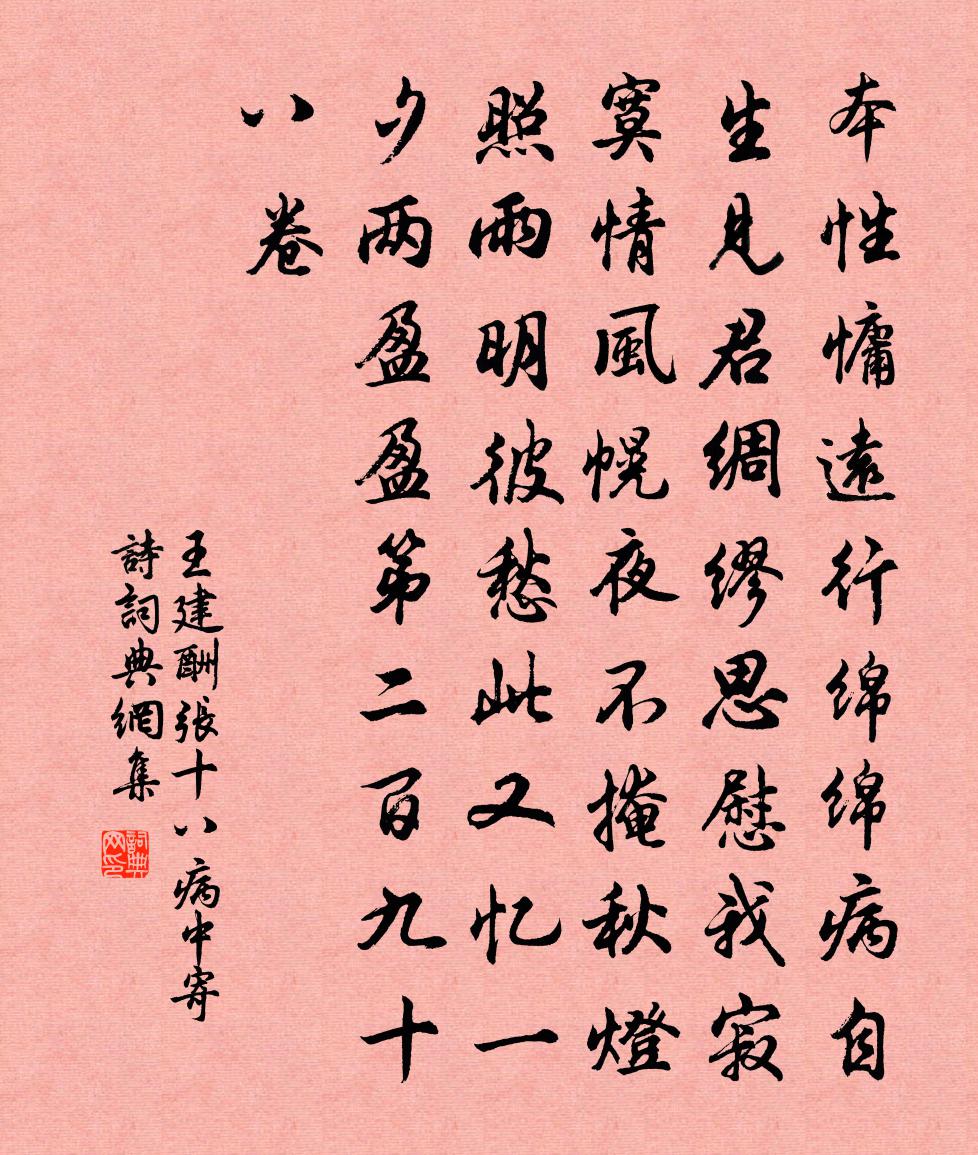 本性慵遠行绵绵病自
生見君綢繆思慰我寂
寞情風幌夜不掩秋燈
照雨明彼愁此又忆一
夕两盈盈第二百九十
八卷
王建酬張十八病中寄
詩詞典網集
詞典网印